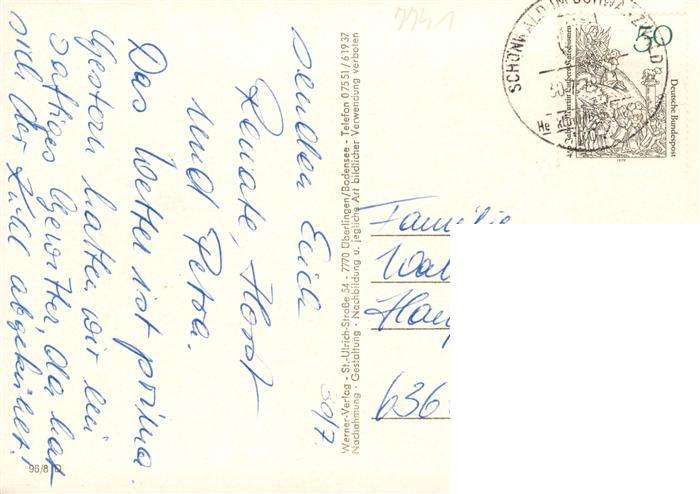 senden Euch
Renate, Horst
und Petra.
Das Wetter ist prima.
Gestern hatten wir ein
saftiges Gewitter, da hat
sich die Luft abgekühlt!
30/7.
96/8
Werner-Verlag · St.-Ulrich-Straße 54 · 7770 Überlingen/Bodensee · Telefon 07551/61937
Nachahmung · Gestaltung · Nachbildung u. jegliche Art bildlicher Verwendung verboten
SCHÖNWALD IM SCHWARZWALD
50
Deutsche Bundespost
1979
Familie
636